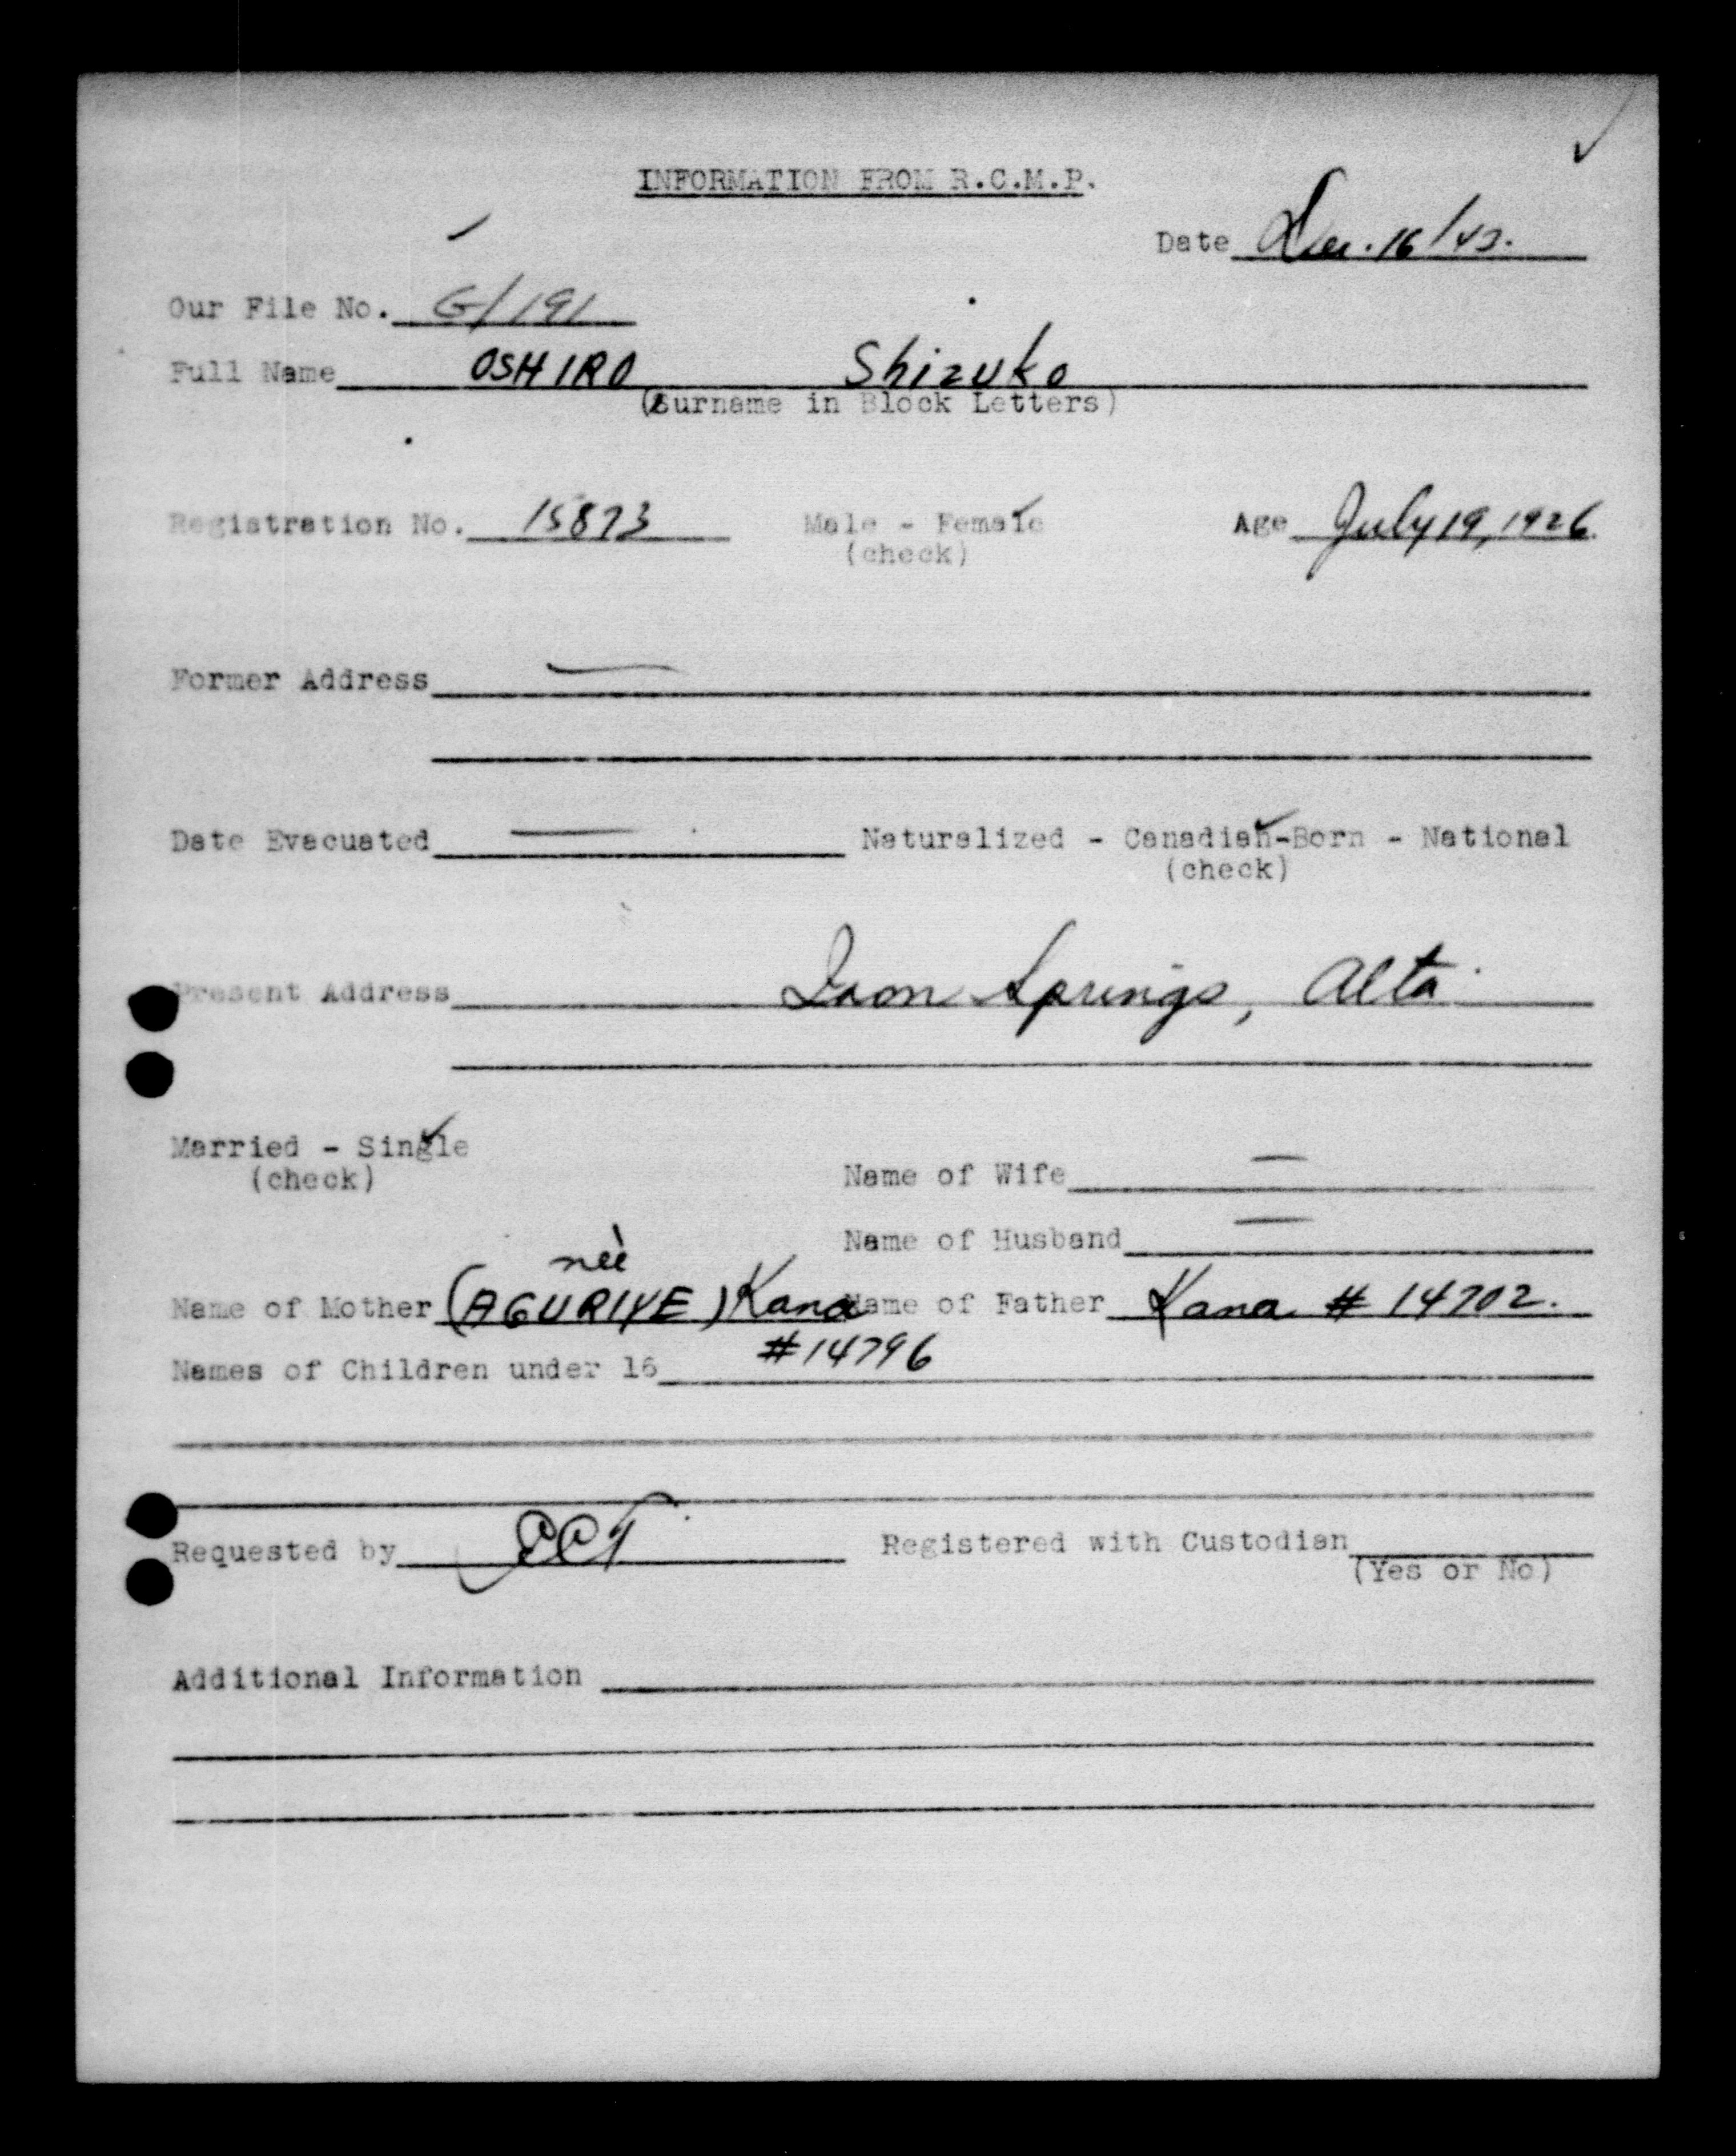 INFORMATION FROM R.C.M.P.
Date Dec. 16/43.
Our File No. G/191
Full Name OSHIRO Shizuko
(Surname in Block Letters)
Registration No. 15873 Male - Female Age July 19, 1926.
(check)
Former Address —
Date Evacuated — Naturalized - Canadian-Born - National
(check)
Present Address Iron Springs, Alta.
Married - Single
(check)
Name of Wife —
Name of Husband —
neè
Name of Mother (AGURIYE) Kana Name of Father Kana # 14702.
#14796
Names of Children under 16
Requested by Registered with Custodian
(Yes or No)
Additional Information